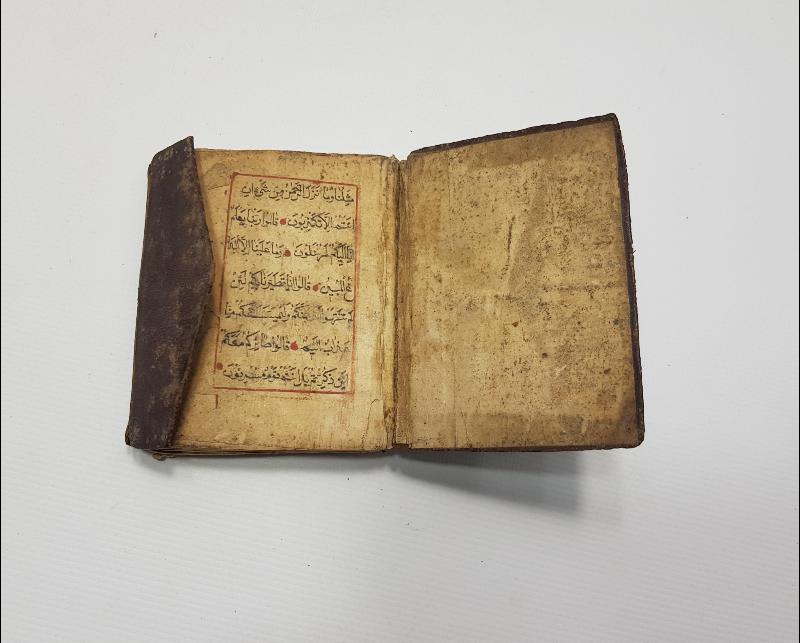 مِثْلُنَا وَمَا اَنْزَلَ الرَّحْمٰنُ مِنْ شَيْءٍ اِنْ
اَنْتُمْ اِلَّا تَكْذِبُونَ قَالُوا رَبُّنَا يَعْلَمُ
اِنَّا اِلَيْكُمْ لَمُرْسَلُونَ وَمَا عَلَيْنَا اِلَّا الْبَلَا
غُ الْمُبِينُ قَالُوا اِنَّا تَطَيَّرْنَا بِكُمْ لَئِنْ
لَمْ تَنْتَهُوا لَنَرْجُمَنَّكُمْ وَلَيَمَسَّنَّكُمْ مِنَّا
عَذَابٌ اَلِيمٌ قَالُوا طَائِرُكُمْ مَعَكُمْ
اَئِنْ ذُكِّرْتُمْ بَلْ اَنْتُمْ قَوْمٌ مُسْرِفُونَ